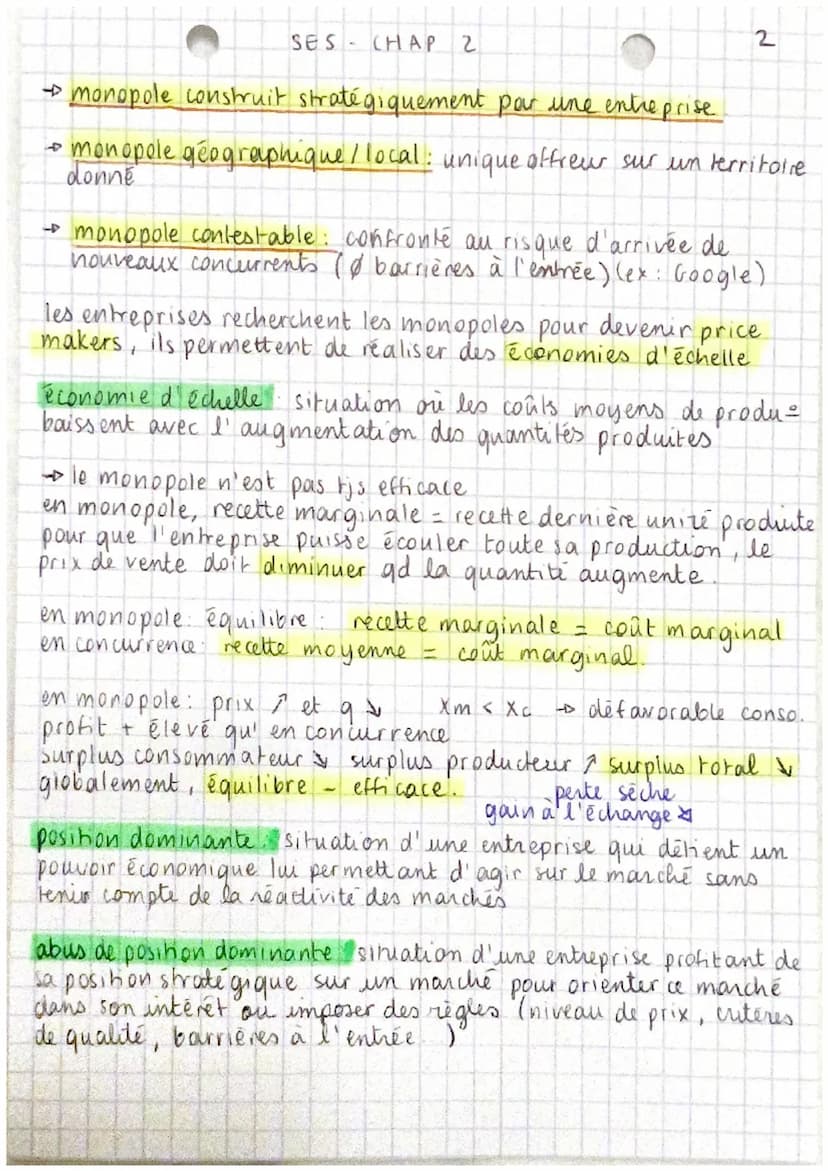 SES - CHAP 2
2
→ monopole construit stratégiquement par une entreprise
→ monopole géographique / local : unique offreur sur un territoire
donné
→ monopole contestable : confronté au risque d'arrivée de
nouveaux concurrents (Ø barrières à l'entrée) (ex : Google)
les entreprises recherchent les monopoles pour devenir price
makers, ils permettent de réaliser des économies d'échelle
économie d'échelle : situation où les coûts moyens de produº
baissent avec l'augmentation des quantités produites
→ le monopole n'est pas tjs efficace
en monopole, recette marginale = recette dernière unité produite
pour que l'entreprise puisse écouler toute sa production, le
prix de vente doit diminuer qd la quantité augmente.
en monopole : équilibre : recette marginale = coût marginal
en concurrence : recette moyenne = coût marginal.
en monopole : prix ↗ et q ↘ Xm < Xc → défavorable conso.
profit + élevé qu'en concurrence
surplus consommateur ↘ surplus producteur ↗ surplus total ↘
globalement, équilibre - efficace. perte sèche
gain à l'échange ↘
position dominante : situation d'une entreprise qui détient un
pouvoir économique lui permettant d'agir sur le marché sans
tenir compte de la réactivité des marchés
abus de position dominante : situation d'une entreprise profitant de
sa position stratégique sur un marché pour orienter ce marché
dans son intérêt ou imposer des règles (niveau de prix, critères
de qualité, barrières à l'entrée...)